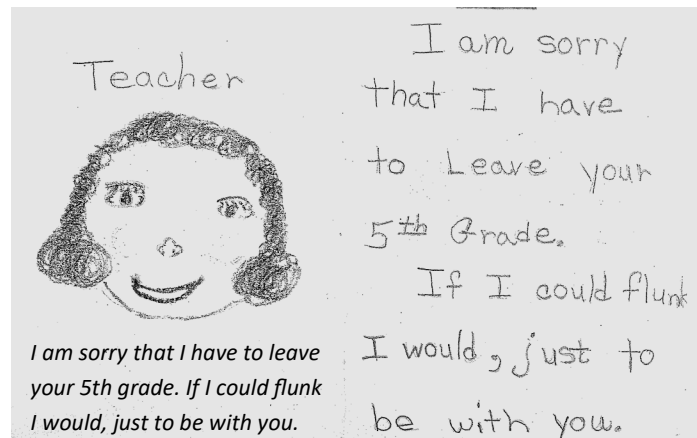 Teacher
I am sorry that I have to leave
your 5th grade. If I could flunk
I would, just to be with you.
I am sorry
that I have
to Leave your
5th Grade.
If I could flunk
I would, just to
be with you.